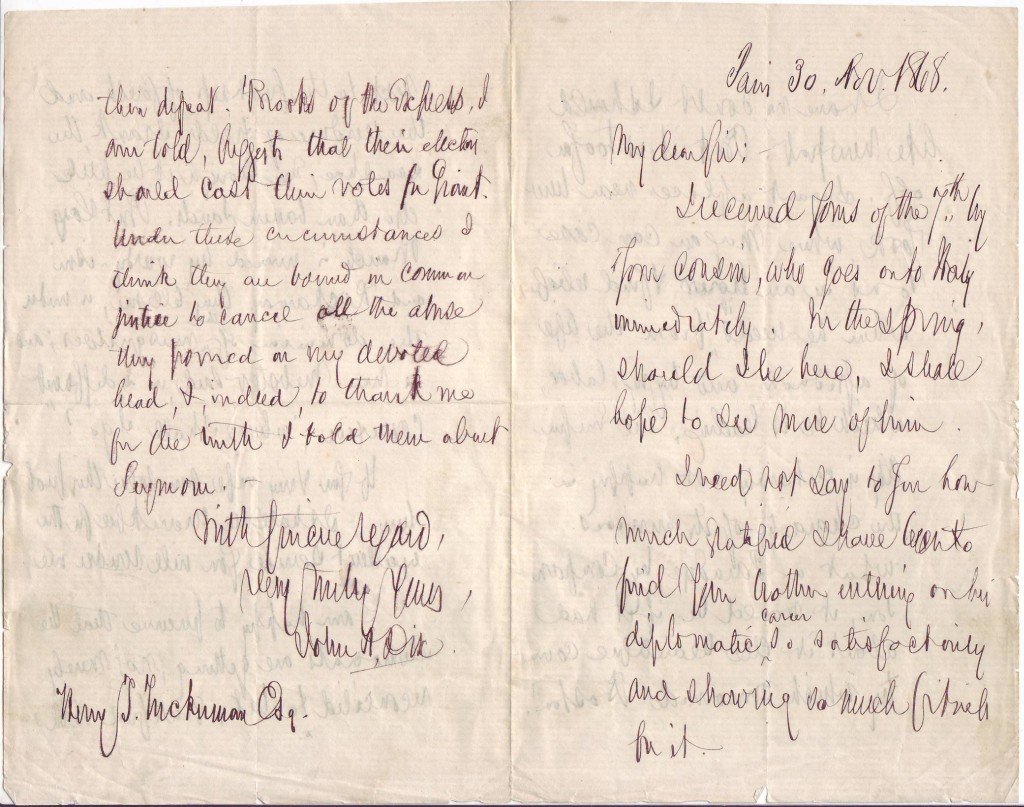 Paris 30. Nov. 1868.
My dear Sir:
I received yours of the 7th. by
your cousin, who goes on to Italy
immediately. In the spring,
should I be here, I shall
hope to see more of him.
I need not say to you how
much gratified I have been to
find your brother entering on his
diplomatic career so satisfactorily
and showing so much fitness
for it.
their defeat. Brooks of the Express, I
am told, suggests that their electors
should cast their votes for Grant.
Under these circumstances I
think they are bound in common
justice to cancel all the abuse
they poured on my devoted
head, & indeed, to thank me
for the truth I told them about
Seymour. -
With sincere regard,
Very truly Yours,
John A. Dix.
Henry T. Tuckerman Esq.